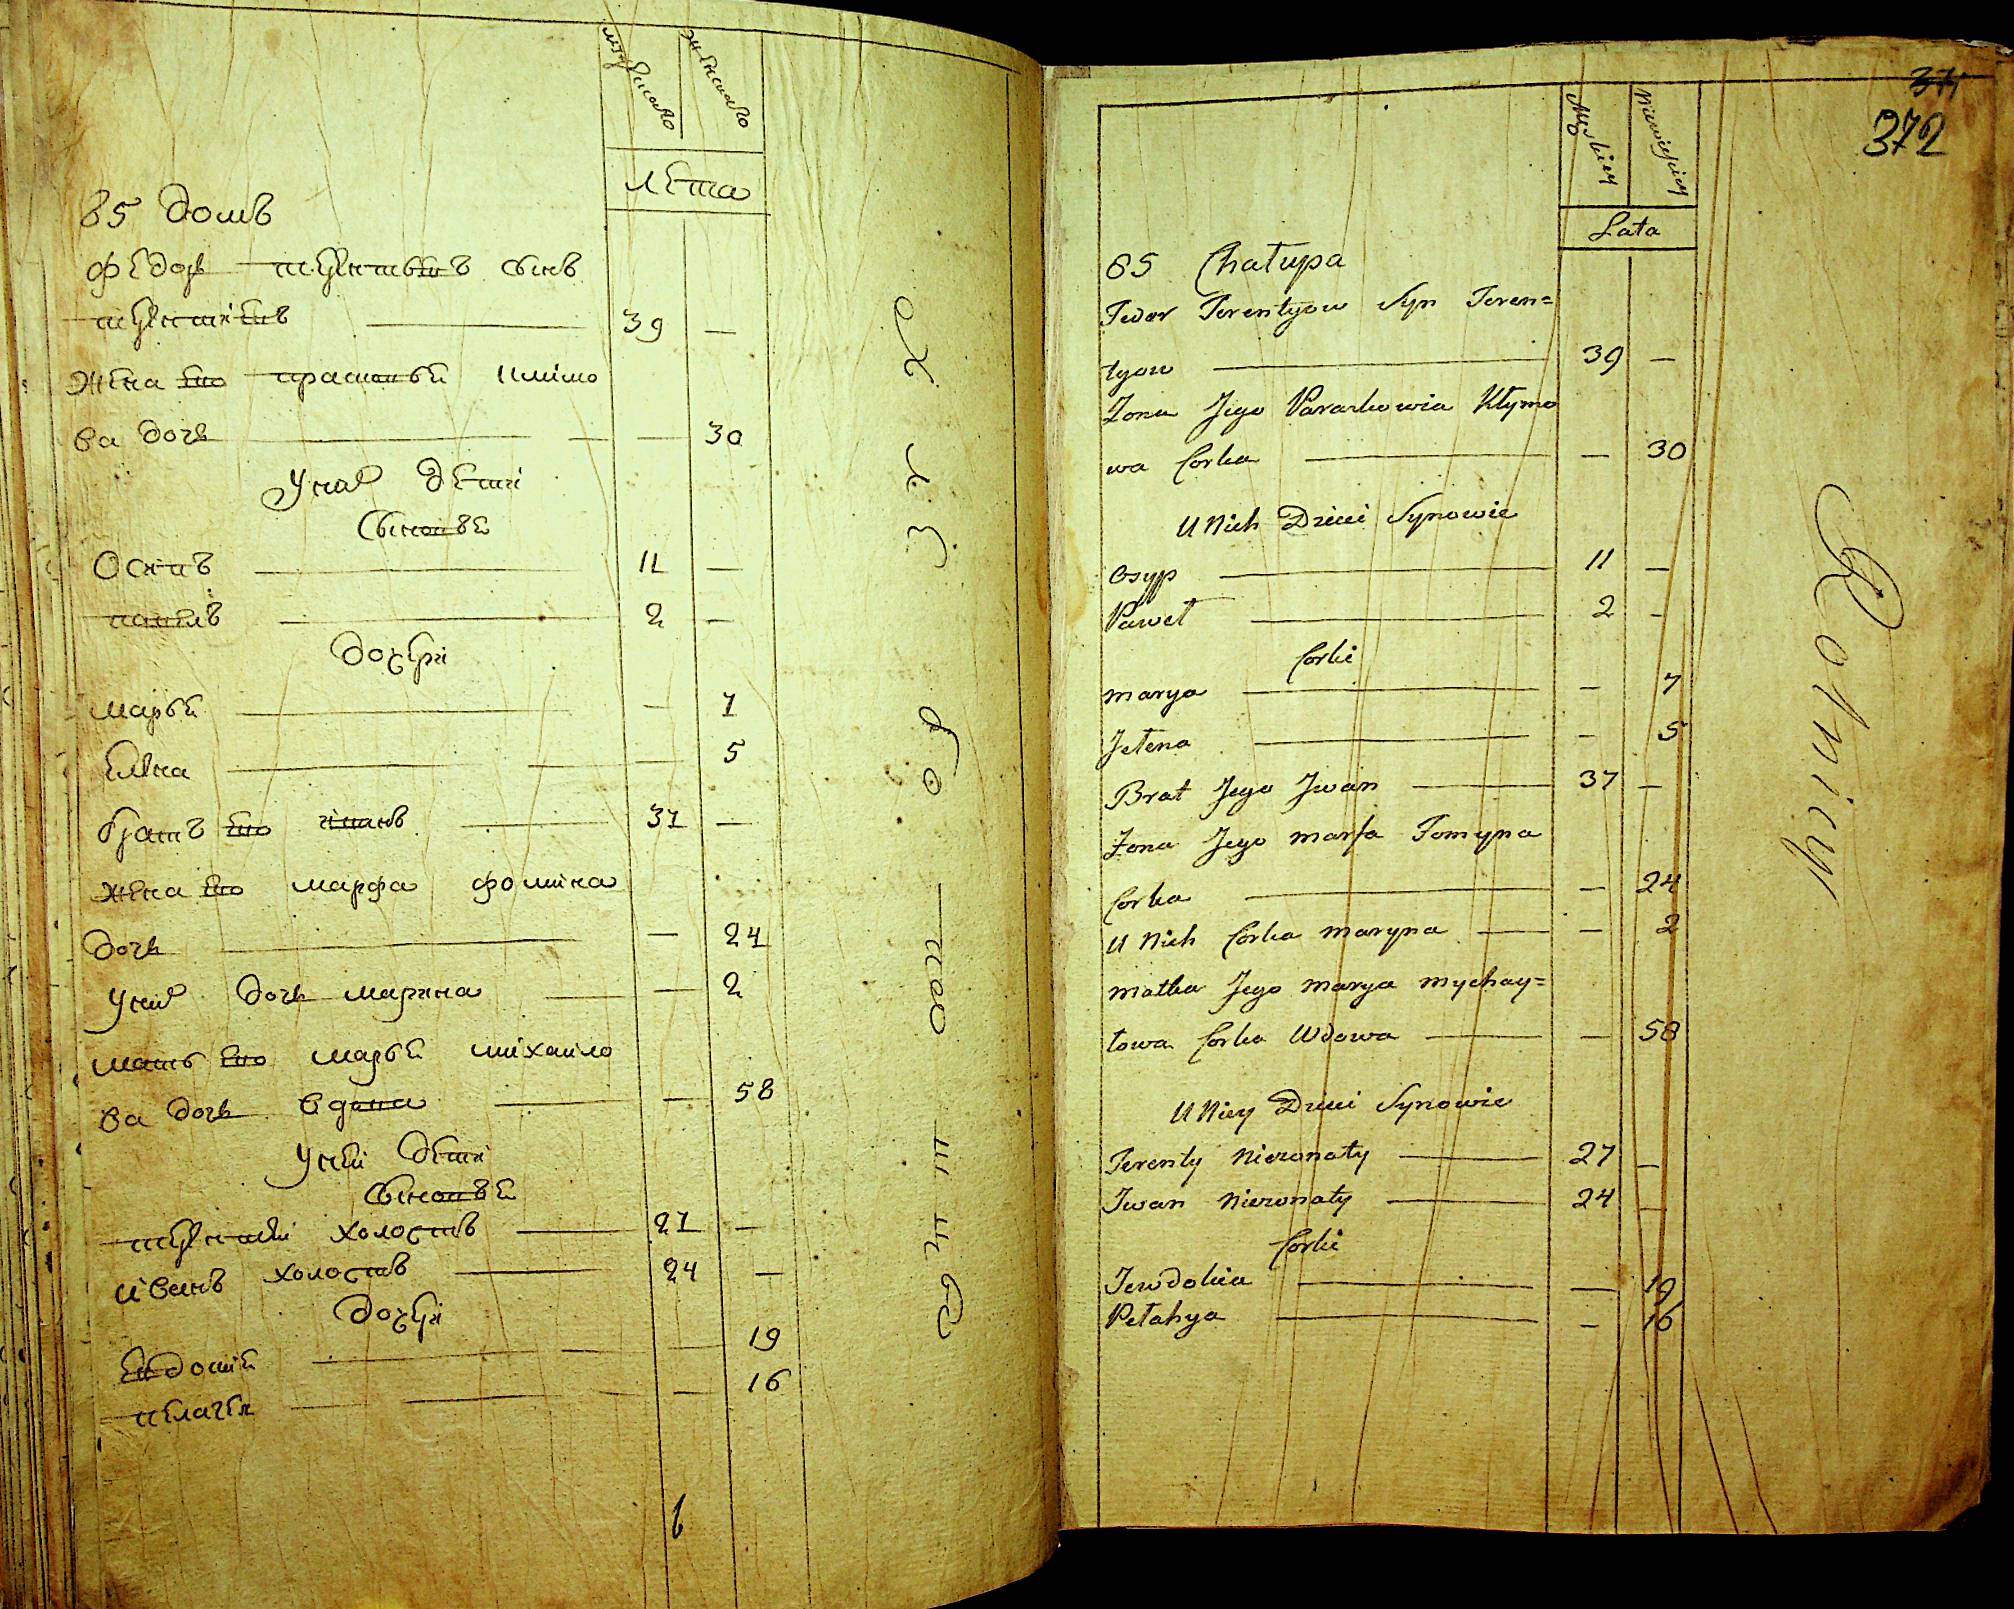 мужеска
женска
лета
85 домъ
Федоръ терентьевъ сынъ
терентiевъ 39 —
жена ево прасковья климо
ва дочь — 30
У нихъ дети
сыновья
Осипъ 11 —
павелъ 2 —
дочери
марья — 7
елена — 5
братъ ево иванъ 37 —
жена ево марфа фомина
дочь — 24
У нихъ дочь марина — 2
мать ево марья михайло
ва дочь вдова — 58
У ней дети
сыновья
терентей холостъ 27 —
иванъ холостъ 24 —
дочери
евдокия — 19
пелагея — 16
371
372
Męskiey
Niewieściey
Lata
85 Chałupa
Fedor Terentyow Syn Teren=
tyow 39 —
Zona Jego Paraskowia Kłymo
wa Corka — 30
U Nich Dzieci Synowie
Osyp 11 —
Paweł 2 —
Corki
marya — 7
Jełena — 5
Brat Jego Jwan 37 —
Zona Jego marfa Fomyna
Corka — 24
U Nich Corka maryna — 2
matka Jego marya mychay=
łowa Corka Wdowa — 58
U Niey Dzieci Synowie
Terenty Niezonaty 27 —
Jwan Niezonaty 24 —
Corki
Jewdokia — 19
Pełahya — 16
Rolnicy